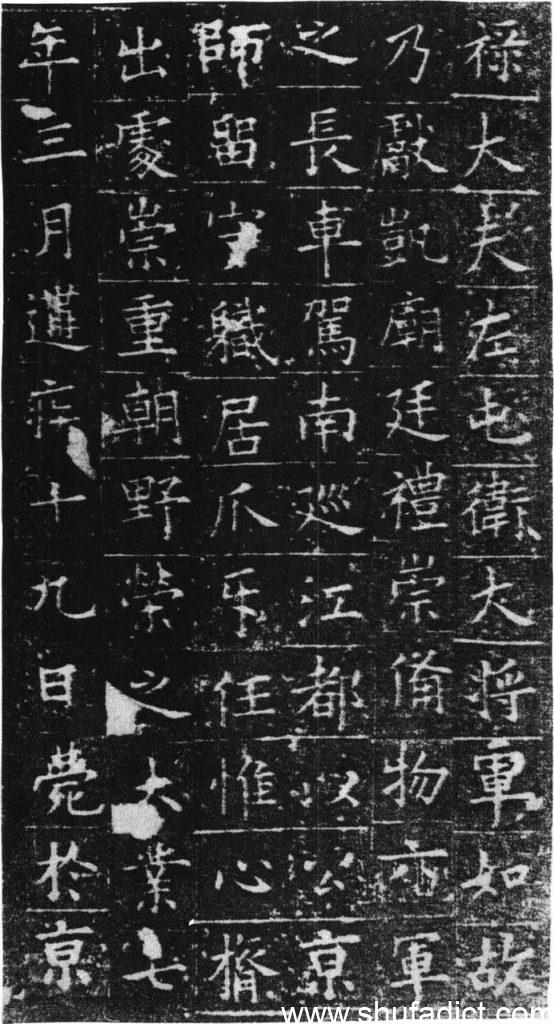 祿大夫左屯衛大將軍如故
乃獻凱廟廷禮崇備物軍
之長車駕南巡江都以公京
師留守職居爪牙任惟心膂
出處崇重朝野榮之大業七
年三月遘疾十九日薨於京
www.shufadict.com